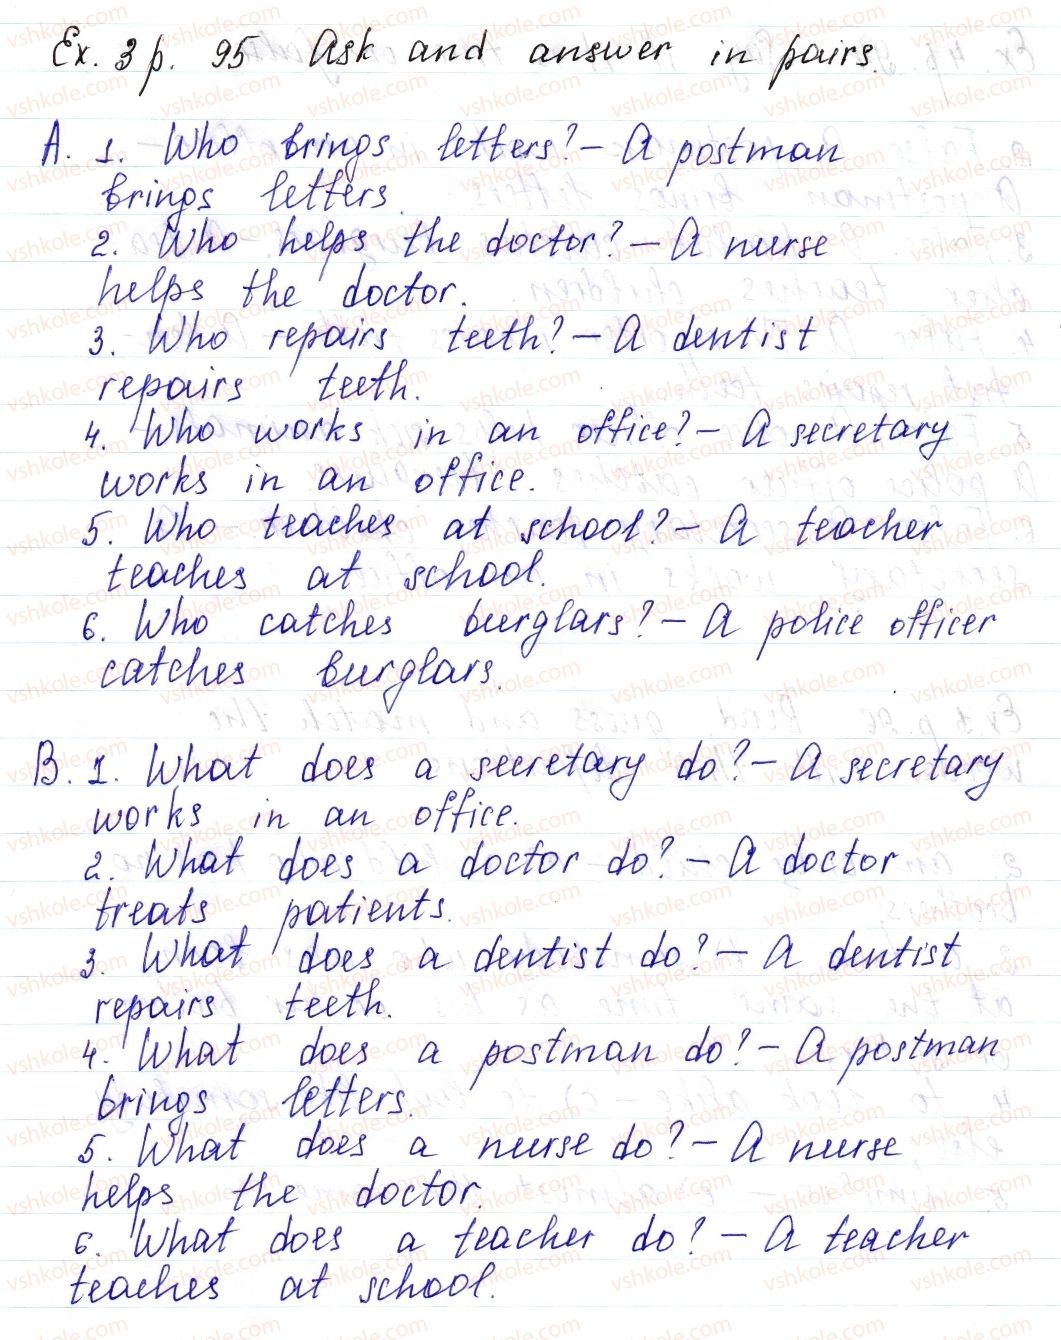 Ex. 3 p. 95 Ask and answer in pairs.
A. 1. Who brings letters? – A postman
brings letters.
2. Who helps the doctor? – A nurse
helps the doctor.
3. Who repairs teeth? – A dentist
repairs teeth.
4. Who works in an office? – A secretary
works in an office.
5. Who teaches at school? – A teacher
teaches at school.
6. Who catches burglars? – A police officer
catches burglars.
B. 1. What does a secretary do? – A secretary
works in an office.
2. What does a doctor do? – A doctor
treats patients.
3. What does a dentist do? – A dentist
repairs teeth.
4. What does a postman do? – A postman
brings letters.
5. What does a nurse do? – A nurse
helps the doctor.
6. What does a teacher do? – A teacher
teaches at school.
vshkole.com